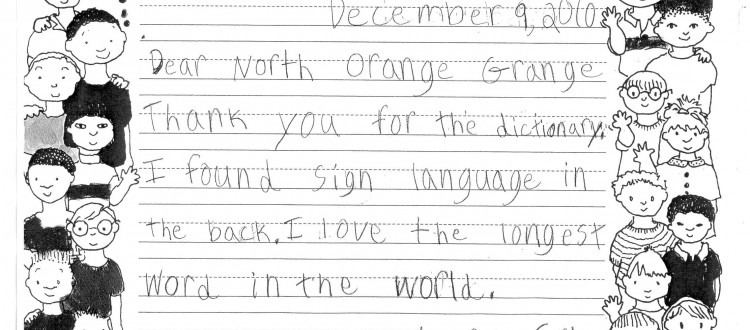 December 9, 2010
Dear North Orange Grange
Thank you for the dictionary.
I found sign language in
the back. I love the longest
word in the world.